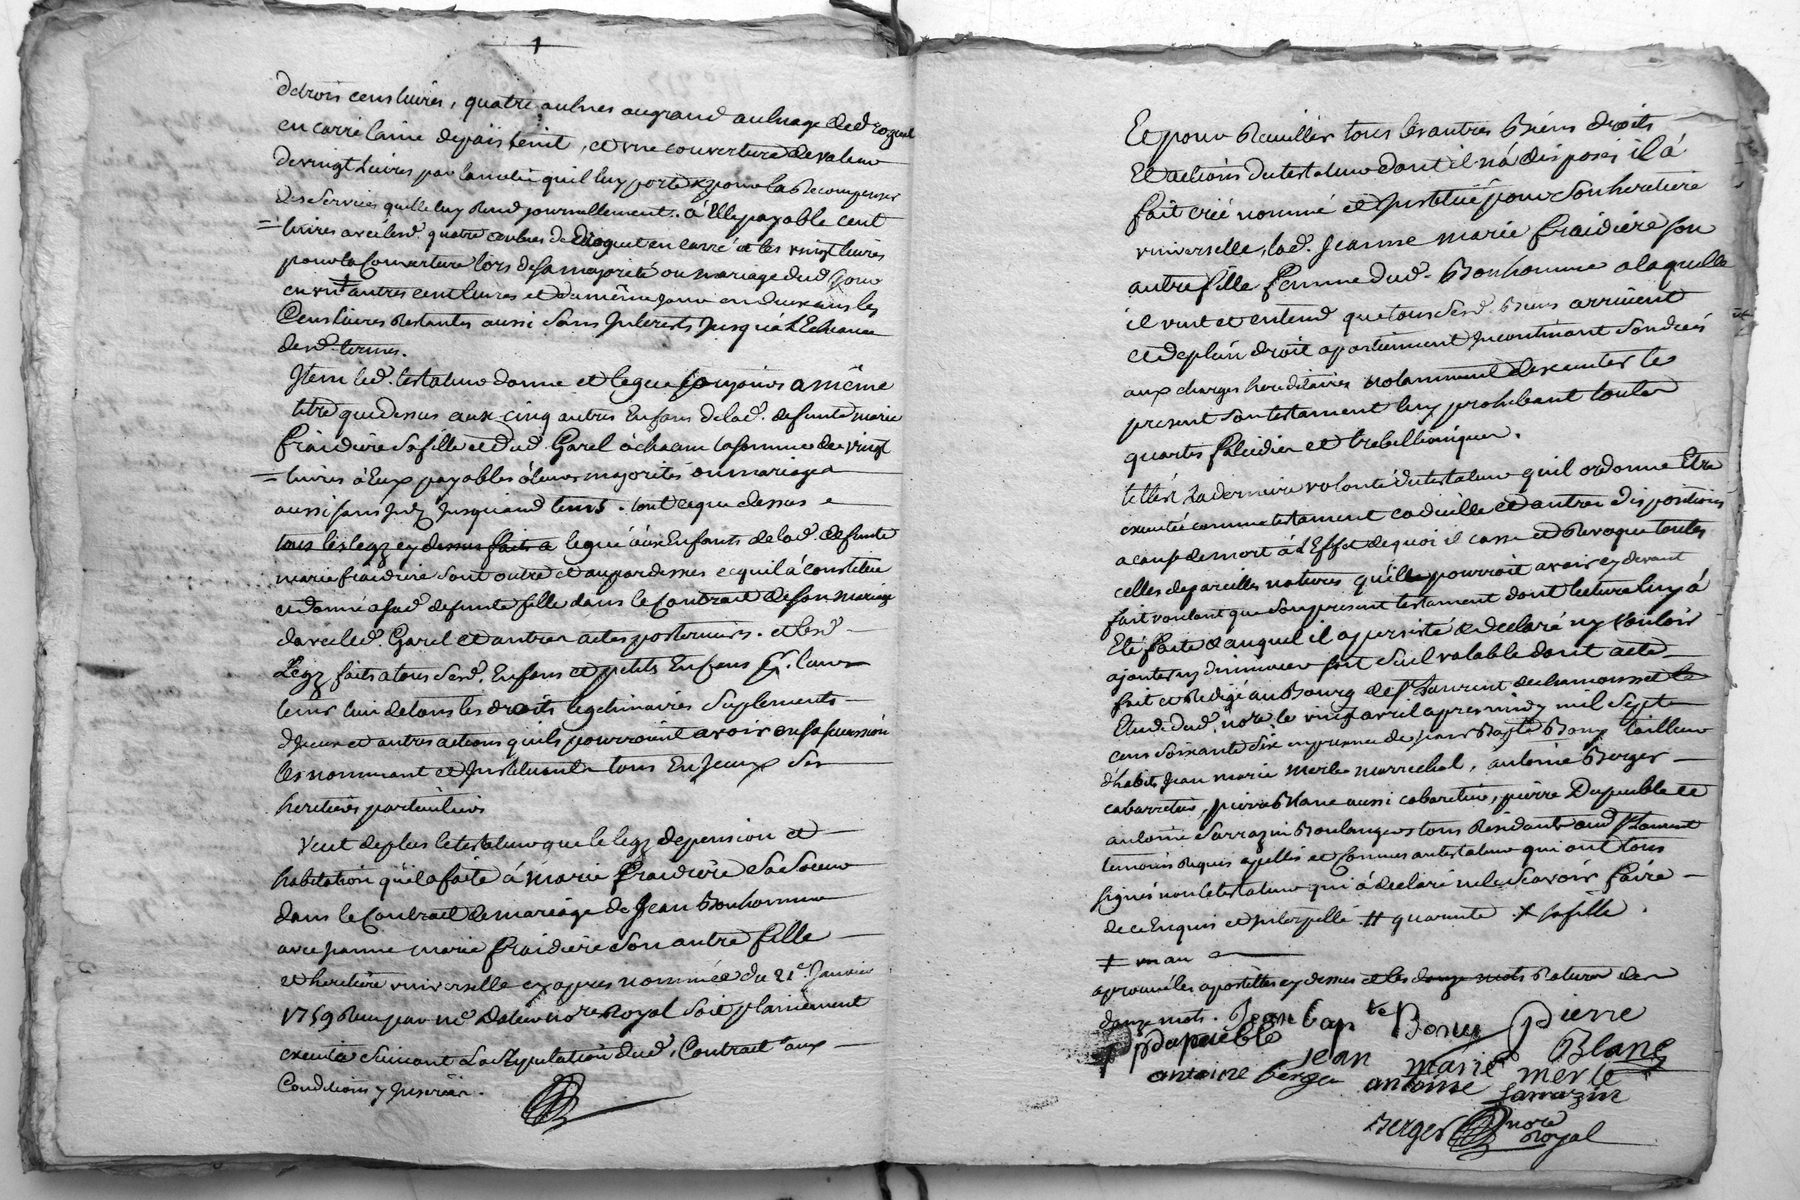 de trois cens livres, quatre aulnes au grand aulnage de droguet
en carré laine depais tenit, et une couverture de valeur
de vingt Livres par lamitié quil luy porte & pour la Recompenser
des Services quelle luy Rend journellement. à Elle payable cent
livres avec lesd. quatre aulnes de Droguet en carré et les vingt livres
pour la Couverture lors de sa majorité ou mariage dud. jour
en un ‡ autres cent livres et du même jour en deux ans les
Cens livres Restantes aussi Sans Interests Jusqu'à L'Echeance
desd. termes.
Item led. testateur donne et legue toujours a même
titre que dessus aux cinq autres Enfans de lad. defunte marie
fraidière Sa fille et dud. Garel à chacun la somme de vingt
livres à Eux payables à leurs majorités ou mariages
aussi sans Int. Jusquaud. tems. tout ce que dessus
tous les legz cy dessus faits a legué aux Enfants de lad. defunte
marie fraidiere Sont outre et au pardessus ce quil à Constitué
et donné a sad. defunte fille dans le Contract de son mariage
d'avec led. Garel et autres actes posterieurs. et lesd.
Légz faits a tous Sesd. Enfans et petits Enfans p. leur
tenir lieu de tous les droits legitimaires Suplements
d'Iceux et autres actions quils pourroient avoir en sa succession
les nommant et Instituants tous En Iceux Ses
heritiers particuliers
Veut de plus le testateur que le legz de pension et
habitation quil a faite à marie fraidiere Sa Soeur
dans le Contract de mariage de Jean Bonhomme
avec Jeanne marie fraidière Son autre fille
et heritière universelle cy apres nommée du 21e. Janvier
1759 Reçu par me. Dateur nore Royal Soit plainement
executé Suivant La Stipulation dud. Contract aux
Conditions y Inserées.
Et pour Recuillir tous les autres Biens droits
Et actions du testateur dont il n'a disposés il à
fait créé nommé et Institué pour Son heritière
universelle, lad. Jeanne marie fraidière Son
autre fille femme dud. Bonhomme a laquelle
il veut et entend que tous Sesd. Biens arrivent
et de plein droit apartiennent Incontinant Son deces
aux charges hereditaires notamment d'executer le
present Son testament luy prohibant toutes
quartes falcidier et trebellianiques.
telle est La derniere volonté du testateur quil ordonne Etre
executée comme testament codicille et autres dispositions
a cause de mort à L'Effet de quoi il casse et Revoque toutes
celles de pareilles natures quil pourroit avoir cy devant
fait voulant que Son present testament dont lecture luy à
Eté faite & auquel il a persisté & declaré ny Vouloir
ajouter ny diminuer soit Seul valable dont acte
fait et Redigé au Bourg de St. Laurent de chamousset
Etude dud. nore le vingt avril apres midy mil Sept
cens Soixante Six en presence de Jean Bapte Bony tailleur
d'habits Jean marie merle marechal, antoine Berger
cabarretier, pierre Blanc aussi cabaretier, pierre Dupeuble et
antoine Sarrazin Boulangers tous Residants aud. St. Laurent
temoins Requis apellés et Connus au testateur qui ont tous
signés non le testateur qui à declaré ne le Scavoir faire
de ce Enquis et Interpellé. # quarente ✗ Sa fille.
‡ un an
aprouvé les apostilles cy dessus et les douze mots Raturés
douze mots. Jean bapte Bony Pierre Blanc
P dupeuble Jean marie merle
antoine berger antoine Sarrazin
Berger nore Royal